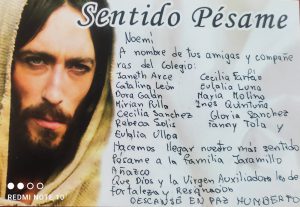 Sentido Pésame
Noemi
A nombre de tus amigas y compañe
ras del Colegio:
Janeth Arce Cecilia Farfán
Catalina León Eulalia Luna
Dora Galán María Molina
Mirian Pulla Ines Quintuña
Cecilia Sanchez Gloria Sanchez
Rebeca Solis Fanny Tola y
Eulalia Ulloa
Hacemos llegar nuestro más sentido
Pésame a la Familia Jaramillo
Añazco
Que Dios y la Virgen Auxiliadora les de
fortaleza y Resignación
DESCANSE EN PAZ HUMBERTO
REDMI NOTE 10